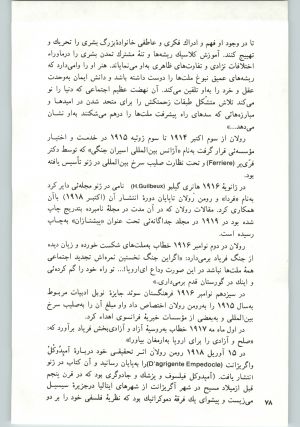 تا در وجود او فهم و ادراك فكرى و عاطفى خانوادهٔ بزرگ بشرى را تحريك و
تهييج كنند. آموزش كلاسيك ريشه‌ها و تنهٔ مشترك تمدن بشرى را درماوراء
اختلافات نژادى و تفاوت‌هاى ظاهرى به‌او مى‌نماياند. هنر او را وامى‌دارد كه
ريشه‌هاى عميق نبوغ ملت‌ها را دوست داشته باشد و دانش ايمان به‌وحدت
عقل و خرد را به‌او تلقين مى‌كند. آن نهضت عظيم اجتماعى كه دنيا را نو
مى‌كند تلاش متشكل طبقات زحمتكش را براى متحد شدن در اميدها و
مبارزه‌هائى كه سدهاى راه پيشرفت ملت‌ها را درهم مى‌شكنند به‌او نشان
مى‌دهد...»
رولان از سوم اكتبر ۱۹۱۴ تا سوم ژوئيه ۱۹۱۵ در خدمت و اختيار
مؤسسه‌ئى قرار گرفت به‌نام «آژانس بين‌المللى اسيران جنگى» كه توسط دكتر
فرى‌ير (Ferriere) و تحت نظارت صليب سرخ بين‌المللى در ژنو تأسيس يافته
بود.
در ژانويهٔ ۱۹۱۶ هانرى گيلبو (H.Guilbeux) نامى در ژنو مجله‌ئى داير كرد
به‌نام «فردا» و رومن رولان تاپايان دورهٔ انتشار آن (اكتبر ۱۹۱۸) باآن
همكارى كرد. مقالات رولان كه در آن مدت در مجلهٔ نامبرده بتدريج چاپ
شده بود در ۱۹۱۹ در مجلد جداگانه‌ئى تحت عنوان «پيشتازان» به‌چاپ
رسيده است.
رولان در دوم نوامبر ۱۹۱۶ خطاب به‌ملت‌هاى شكست خورده و زيان ديده
از جنگ فرياد برمى‌دارد: «اگراين جنگ نخستين ثمره‌اش تجديد اجتماعى
همهٔ ملت‌ها نباشد در اين صورت وداع اى‌اروپا!... تو راه خود را گم كرده‌ئى
و اينك در گورستان قدم برمى‌دارى.»
در سيزدهم نوامبر ۱۹۱۶ فرهنگستان سوئد جايزهٔ نوبل ادبيات مربوط
به‌سال ۱۹۱۵ را به‌رومن رولان اختصاص داد واو مبلغ آن را به‌صليب سرخ
بين‌المللى و به‌بعضى از مؤسسات خيريهٔ فرانسوى اهداء كرد.
در اول ماه مه ۱۹۱۷ خطاب به‌روسيهٔ آزاد و آزادى‌بخش فرياد برآورد كه:
«صلح و آزادى را براى اروپا به‌ارمغان بياور!»
در ۱۵ آوريل ۱۹۱۸ رومن رولان اثر تحقيقى خود دربارهٔ آمپدوكل
واگريژانت (D'agrigente Empedocle) را به‌پايان رسانيد و آن كتاب در ژنو
انتشار يافت. (آمپدوكل فيلسوف و پزشك و جادوگرى بود كه در قرن پنجم
قبل ازميلاد مسيح در شهر آگريژانت از شهرهاى ايتاليا درجزيرهٔ سيسيل
مى‌زيست و پيشواى يك فرقهٔ دموكراتيك بود كه نظريهٔ فلسفى خود را بر دو
۷۸